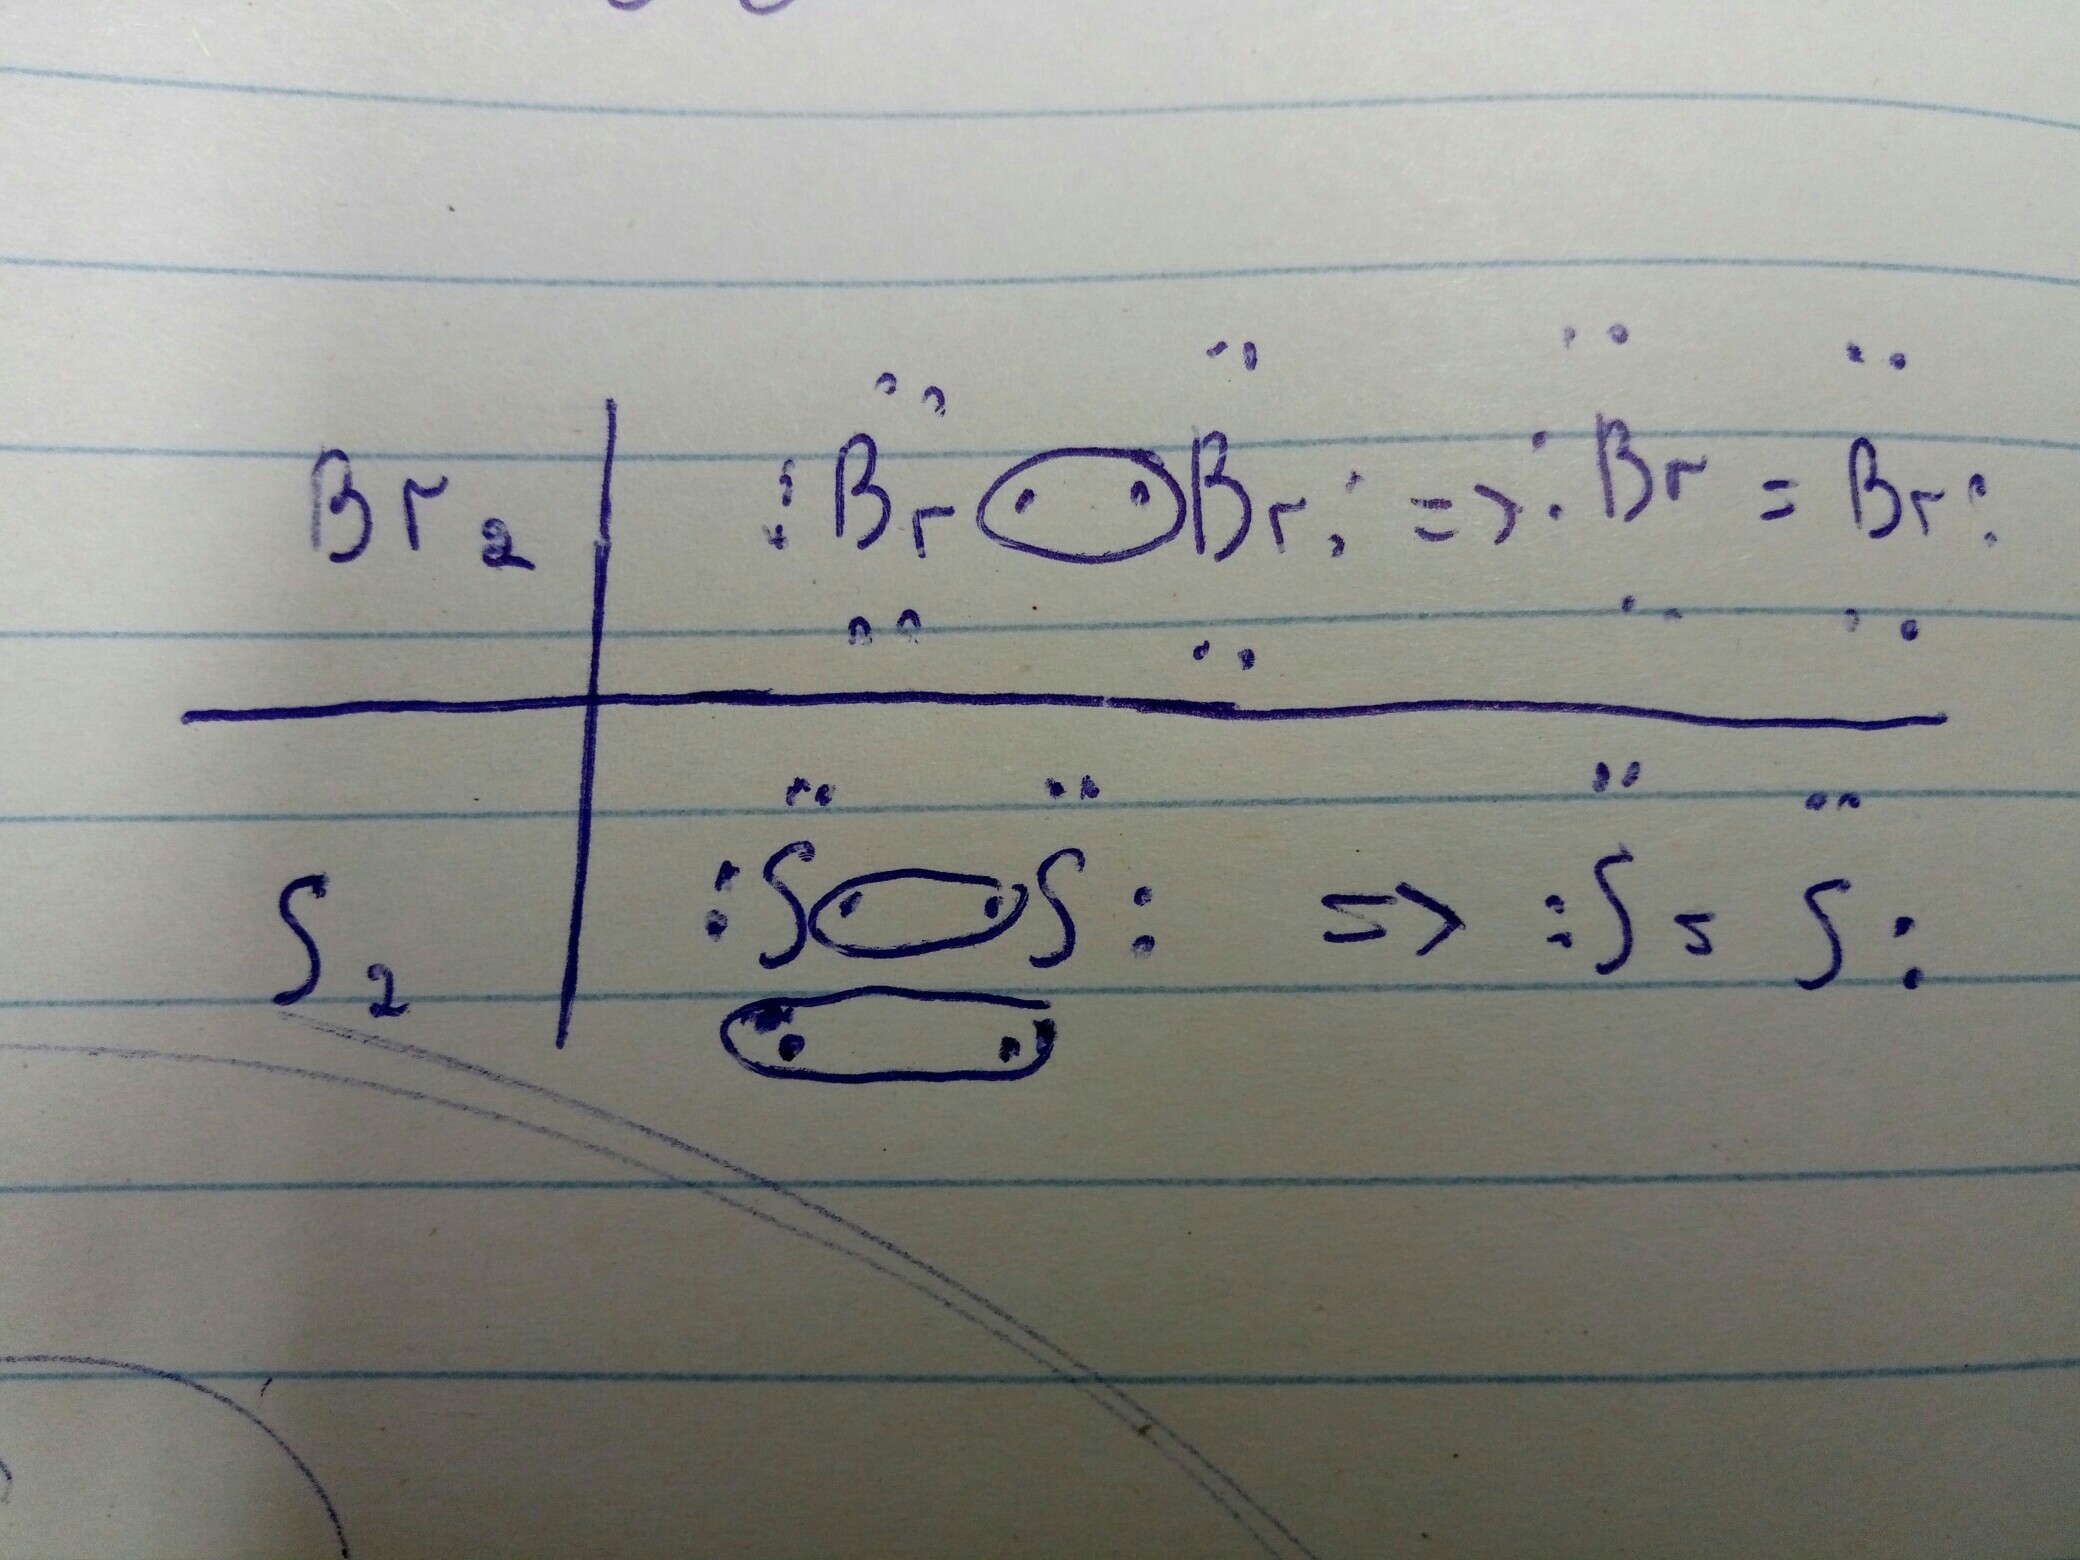 Br₂ :B̤̈r(· ·)B̤̈r: => :B̤̈r = B̤̈r:
S₂ :S̈(· ·)S̈: => :S̈ = S̈:
(· ·)